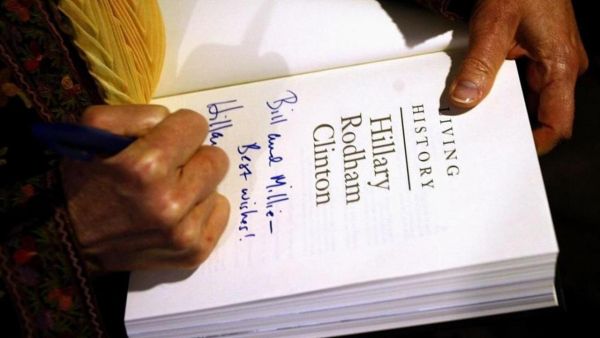 LIVING
HISTORY
Hillary
Rodham
Clinton
Bill and Millie-
Best wishes!
Hilla